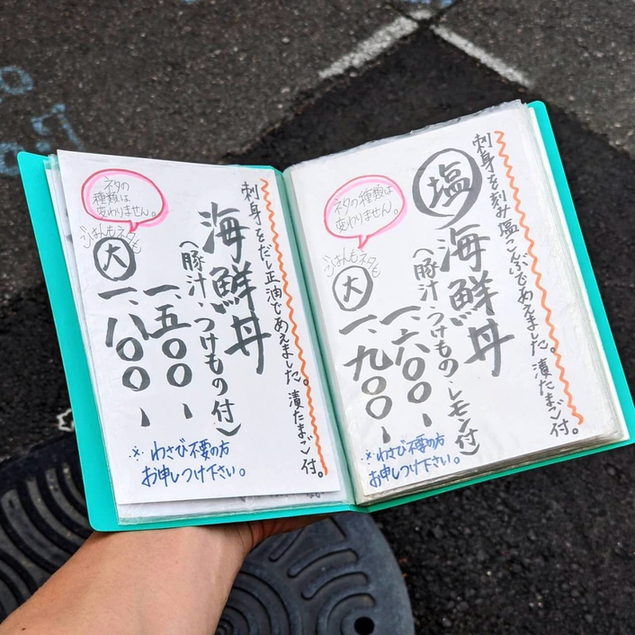 刺身を刻み塩こんぶであえました。漬たまご付。
塩 海鮮丼
(豚汁・つけもの・レモン付)
一、六〇〇、
ごはんもネタも
大 一、九〇〇、
ネタの
種類は
変わりません。
※わさび不要の方
お申しつけ下さい。
刺身をだし正油であえました。漬たまご付。
海鮮丼
(豚汁・つけもの付)
一、五〇〇、
ごはんもネタも
大 一、八〇〇、
ネタの
種類は
変わりません。
※わさび不要の方
お申しつけ下さい。